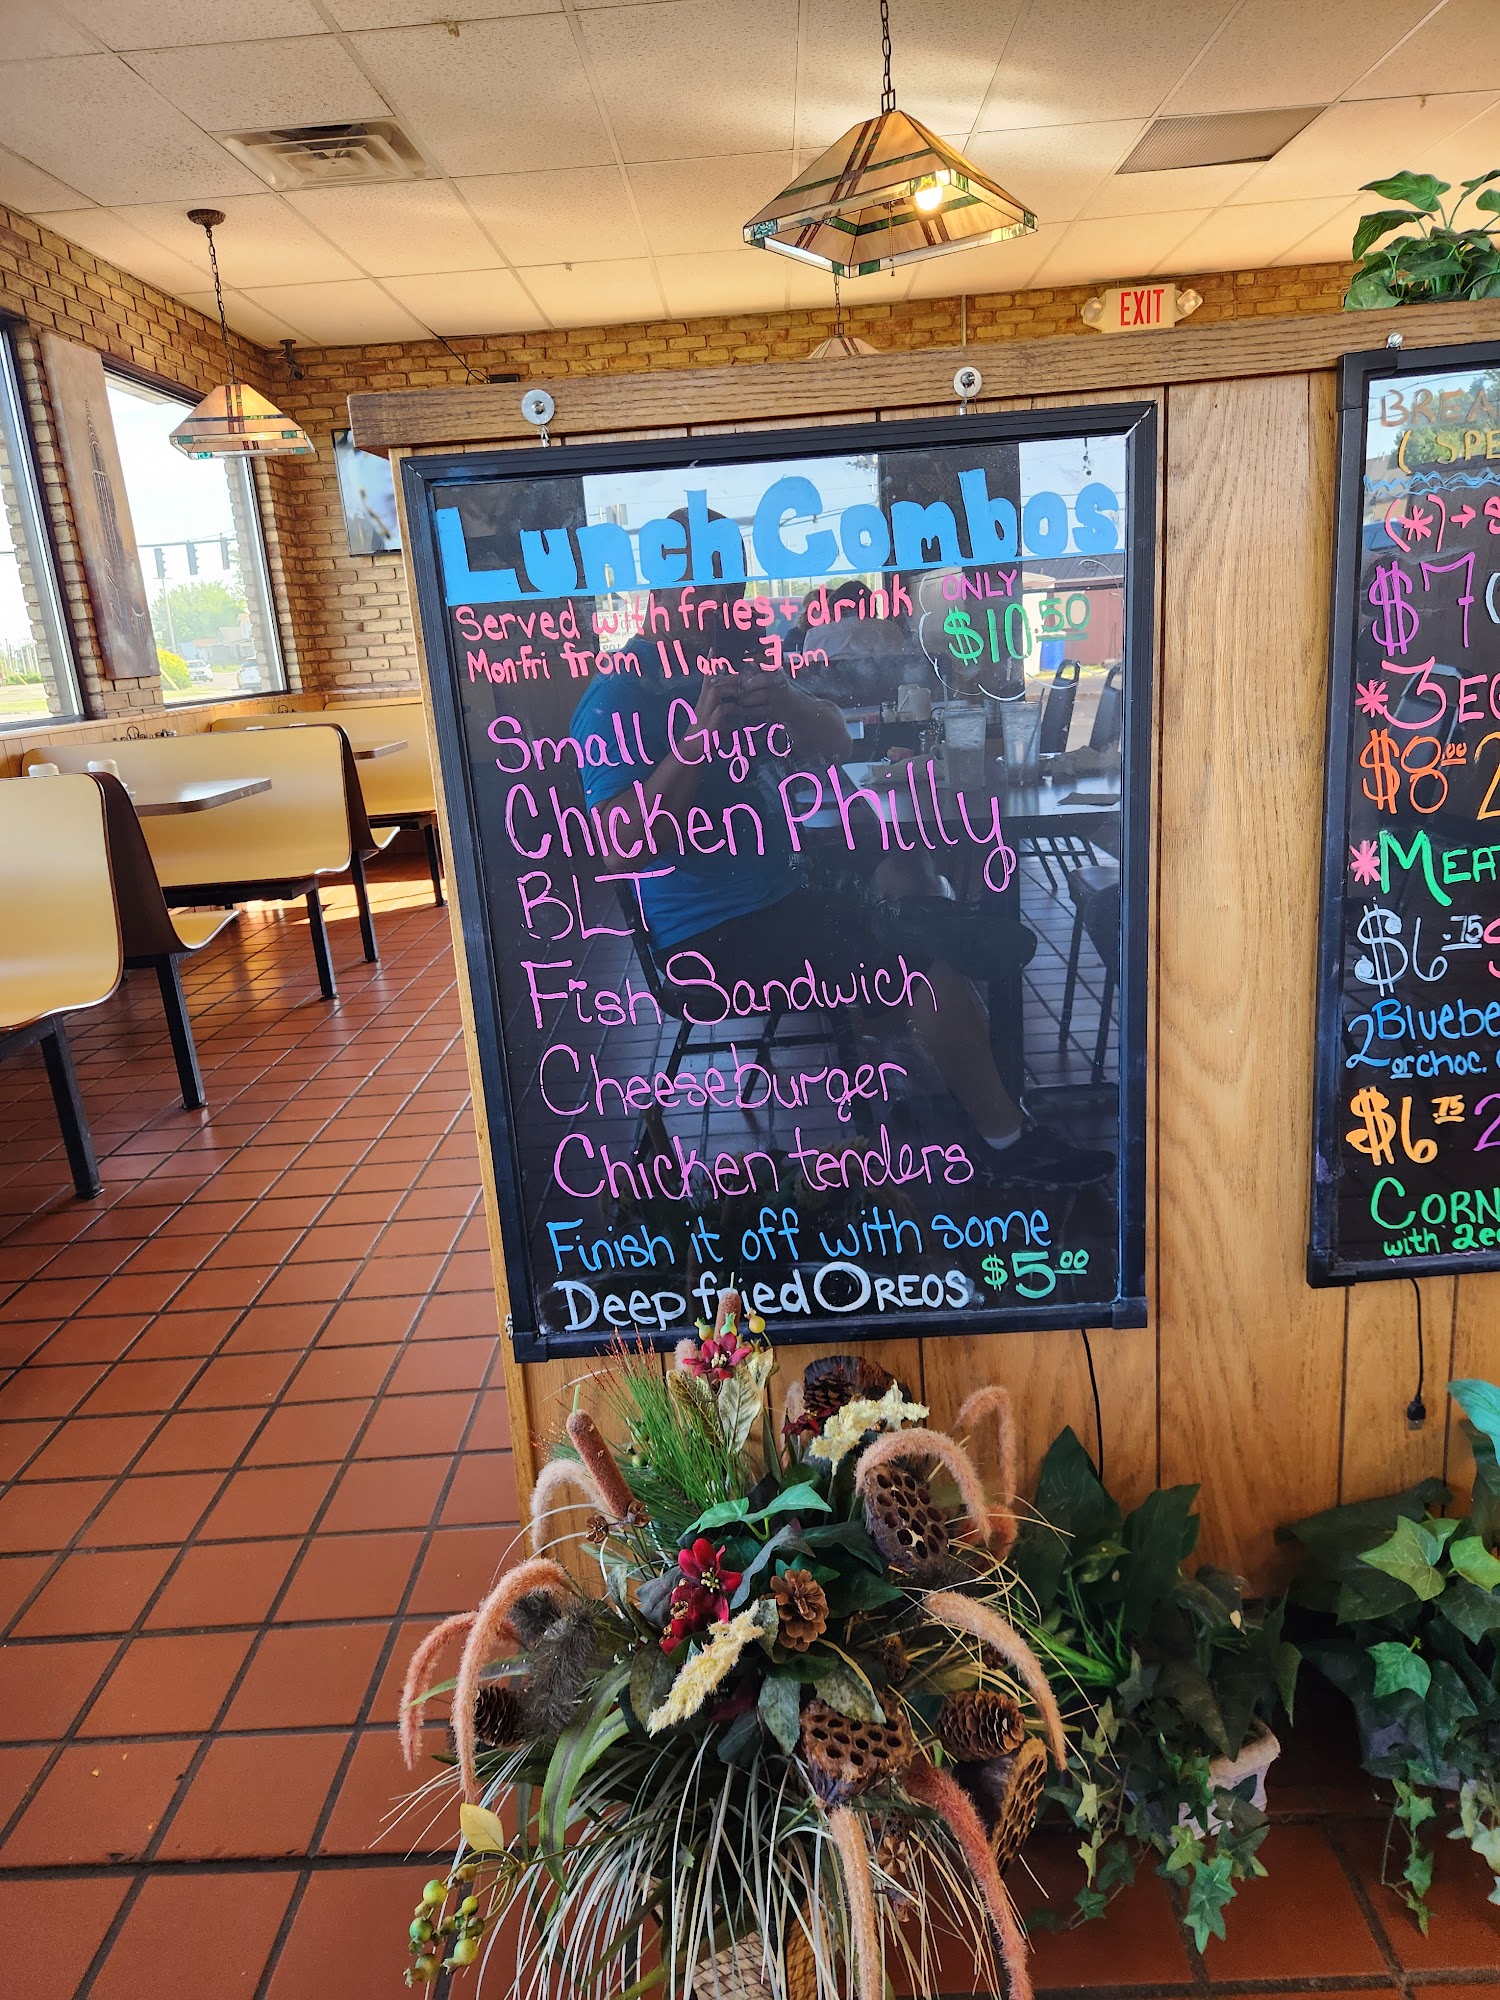 EXIT
Lunch Combos
Served with fries + drink
Mon-Fri from 11am - 3pm
ONLY
$10.50
Small Gyro
Chicken Philly
BLT
Fish Sandwich
Cheeseburger
Chicken tenders
Finish it off with some
Deep fried OREOS $5.00
(*)→
$7
*3
$8.00 2
*
$6.75
2
or choc.
$6.75 2
with